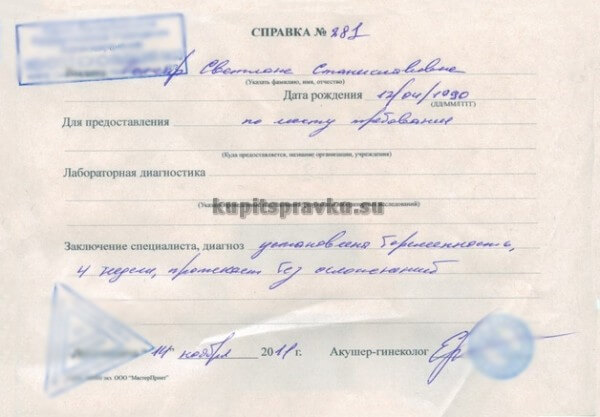 СПРАВКА № 281
Светлане Станиславовне
(Указать фамилию, имя, отчество)
Дата рождения 12/04/1990
(ДД/ММ/ГГГГ)
Для предоставления по месту требования
(Куда предоставляется, название организации, учреждения)
Лабораторная диагностика
kupitspravku.su
Заключение специалиста, диагноз установлена беременность,
4 недели, протекает без осложнений
14 ноября 2011 г. Акушер-гинеколог
ООО "МастерПринт"